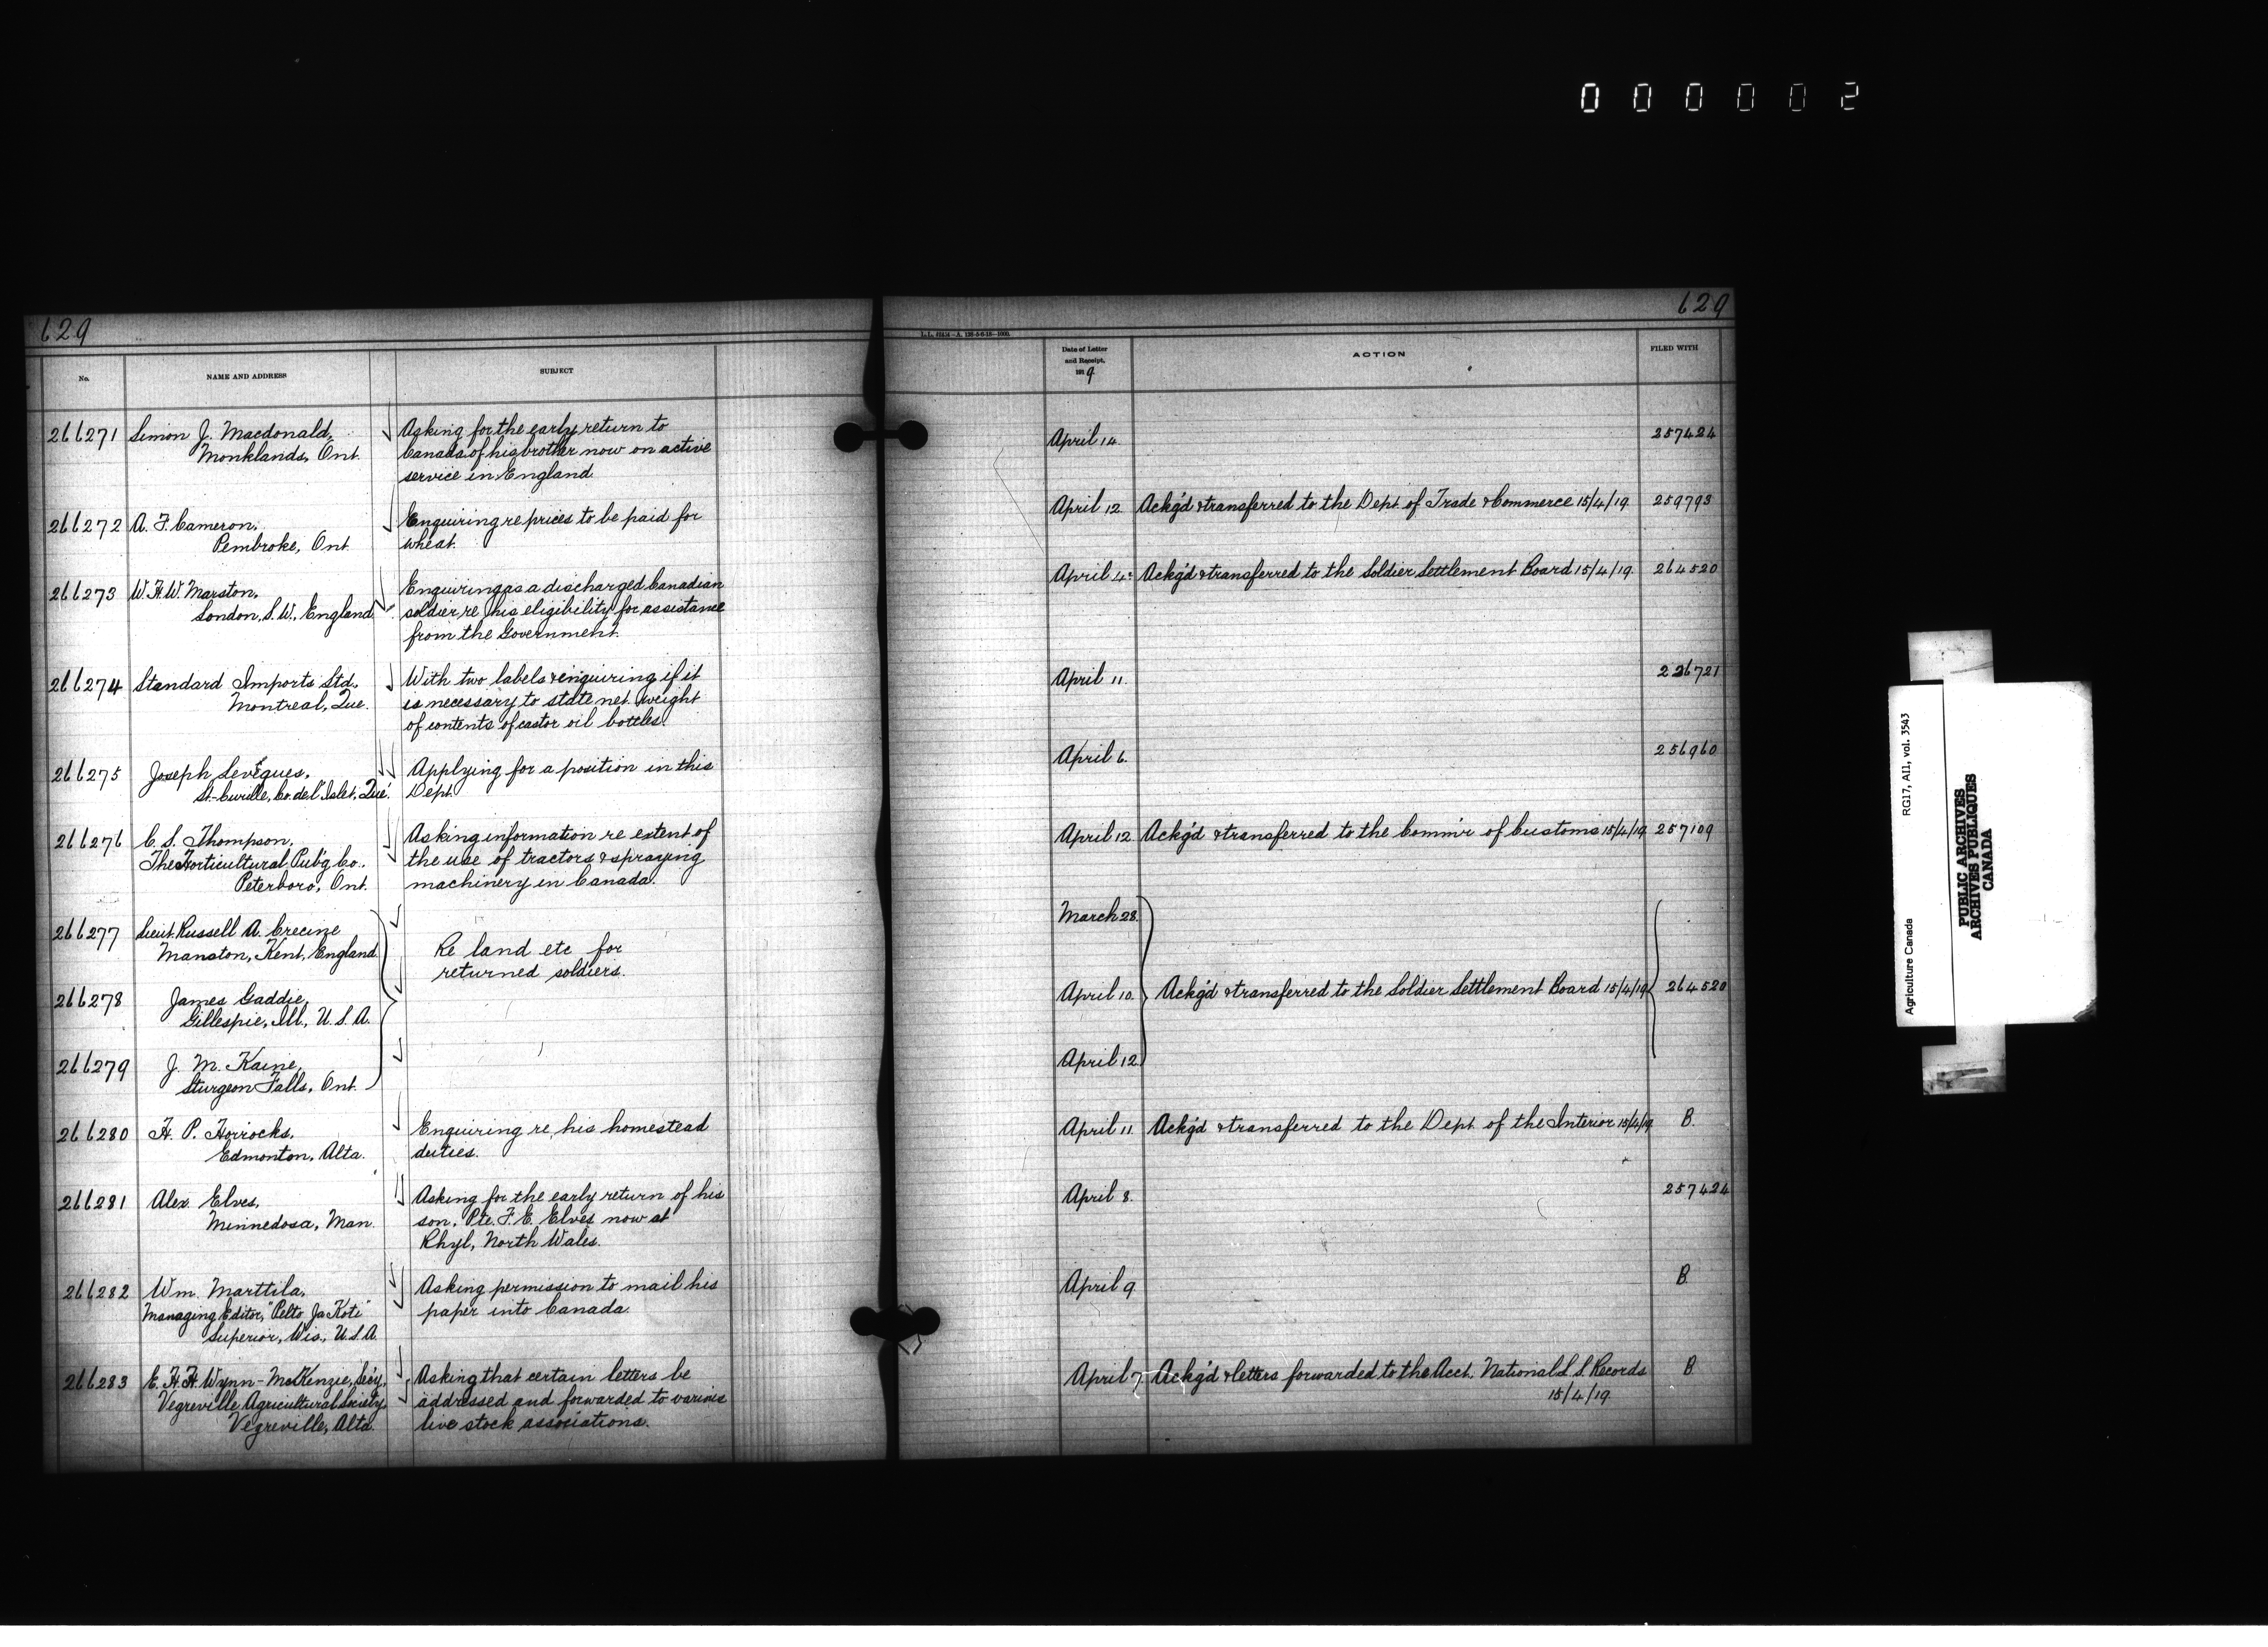 000002
629
629
L.L. 42434-A. 128-5-6-18-1000.
No.
NAME AND ADDRESS
SUBJECT
Date of Letter
and Receipt,
1919
ACTION
FILED WITH
266271 Simon J. Macdonald,
Monklands, Ont.
Asking for the early return to
Canada of his brother now on active
service in England.
April 14.
257424
266272 A. F. Cameron,
Pembroke, Ont.
Enquiring re prices to be paid for
wheat.
April 12. Ackg'd & transferred to the Dept. of Trade & Commerce 15/4/19. 259793
266273 W. H. W. Marston,
London, S. W., England.
Enquiring as a discharged Canadian
soldier re his eligibility for assistance
from the Government.
April 4. Ackg'd & transferred to the Soldier Settlement Board 15/4/19. 264520
266274 Standard Imports Ltd.,
Montreal, Que.
With two labels & enquiring if it
is necessary to state net weight
of contents of castor oil bottles.
April 11.
236721
266275 Joseph Levêques,
St.-Cyrille, Co. de l'Islet, Que.
Applying for a position in this
Dept.
April 6.
256960
266276 C. S. Thompson,
The Horticultural Pub'g Co.,
Peterboro, Ont.
Asking information re extent of
the use of tractors & spraying
machinery in Canada.
April 12. Ackg'd & transferred to the Comm'r of Customs 15/4/19. 257109
266277 Lieut. Russell A. Crecine
Manston, Kent, England
Re land etc for
returned soldiers.
March 28.
266278 James Gaddie,
Gillespie, Ill., U. S. A.
April 10. Ackg'd & transferred to the Soldier Settlement Board 15/4/19. 264520
266279 J. M. Kaine,
Sturgeon Falls, Ont.
April 12.
266280 H. P. Horrocks,
Edmonton, Alta.
Enquiring re, his homestead
duties.
April 11. Ackg'd & transferred to the Dept. of the Interior 15/4/19. B.
266281 Alex. Elves,
Minnedosa, Man.
Asking for the early return of his
son, Pte. F. E. Elves now at
Rhyl, North Wales.
April 8.
257424
266282 Wm. Marttila,
Managing Editor, "Pelto Ja Koti"
Superior, Wis., U.S.A.
Asking permission to mail his
paper into Canada.
April 9.
B.
266283 E. H. H. Wynn-McKenzie, Sec'y,
Vegreville Agricultural Society,
Vegreville, Alta.
Asking that certain letters be
addressed and forwarded to various
live stock associations.
April 7. Ackg'd & letters forwarded to the Acct. National L. S. Records
15/4/19.
B.
Agriculture Canada
RG17, AII, vol. 3543
PUBLIC ARCHIVES
ARCHIVES PUBLIQUES
CANADA